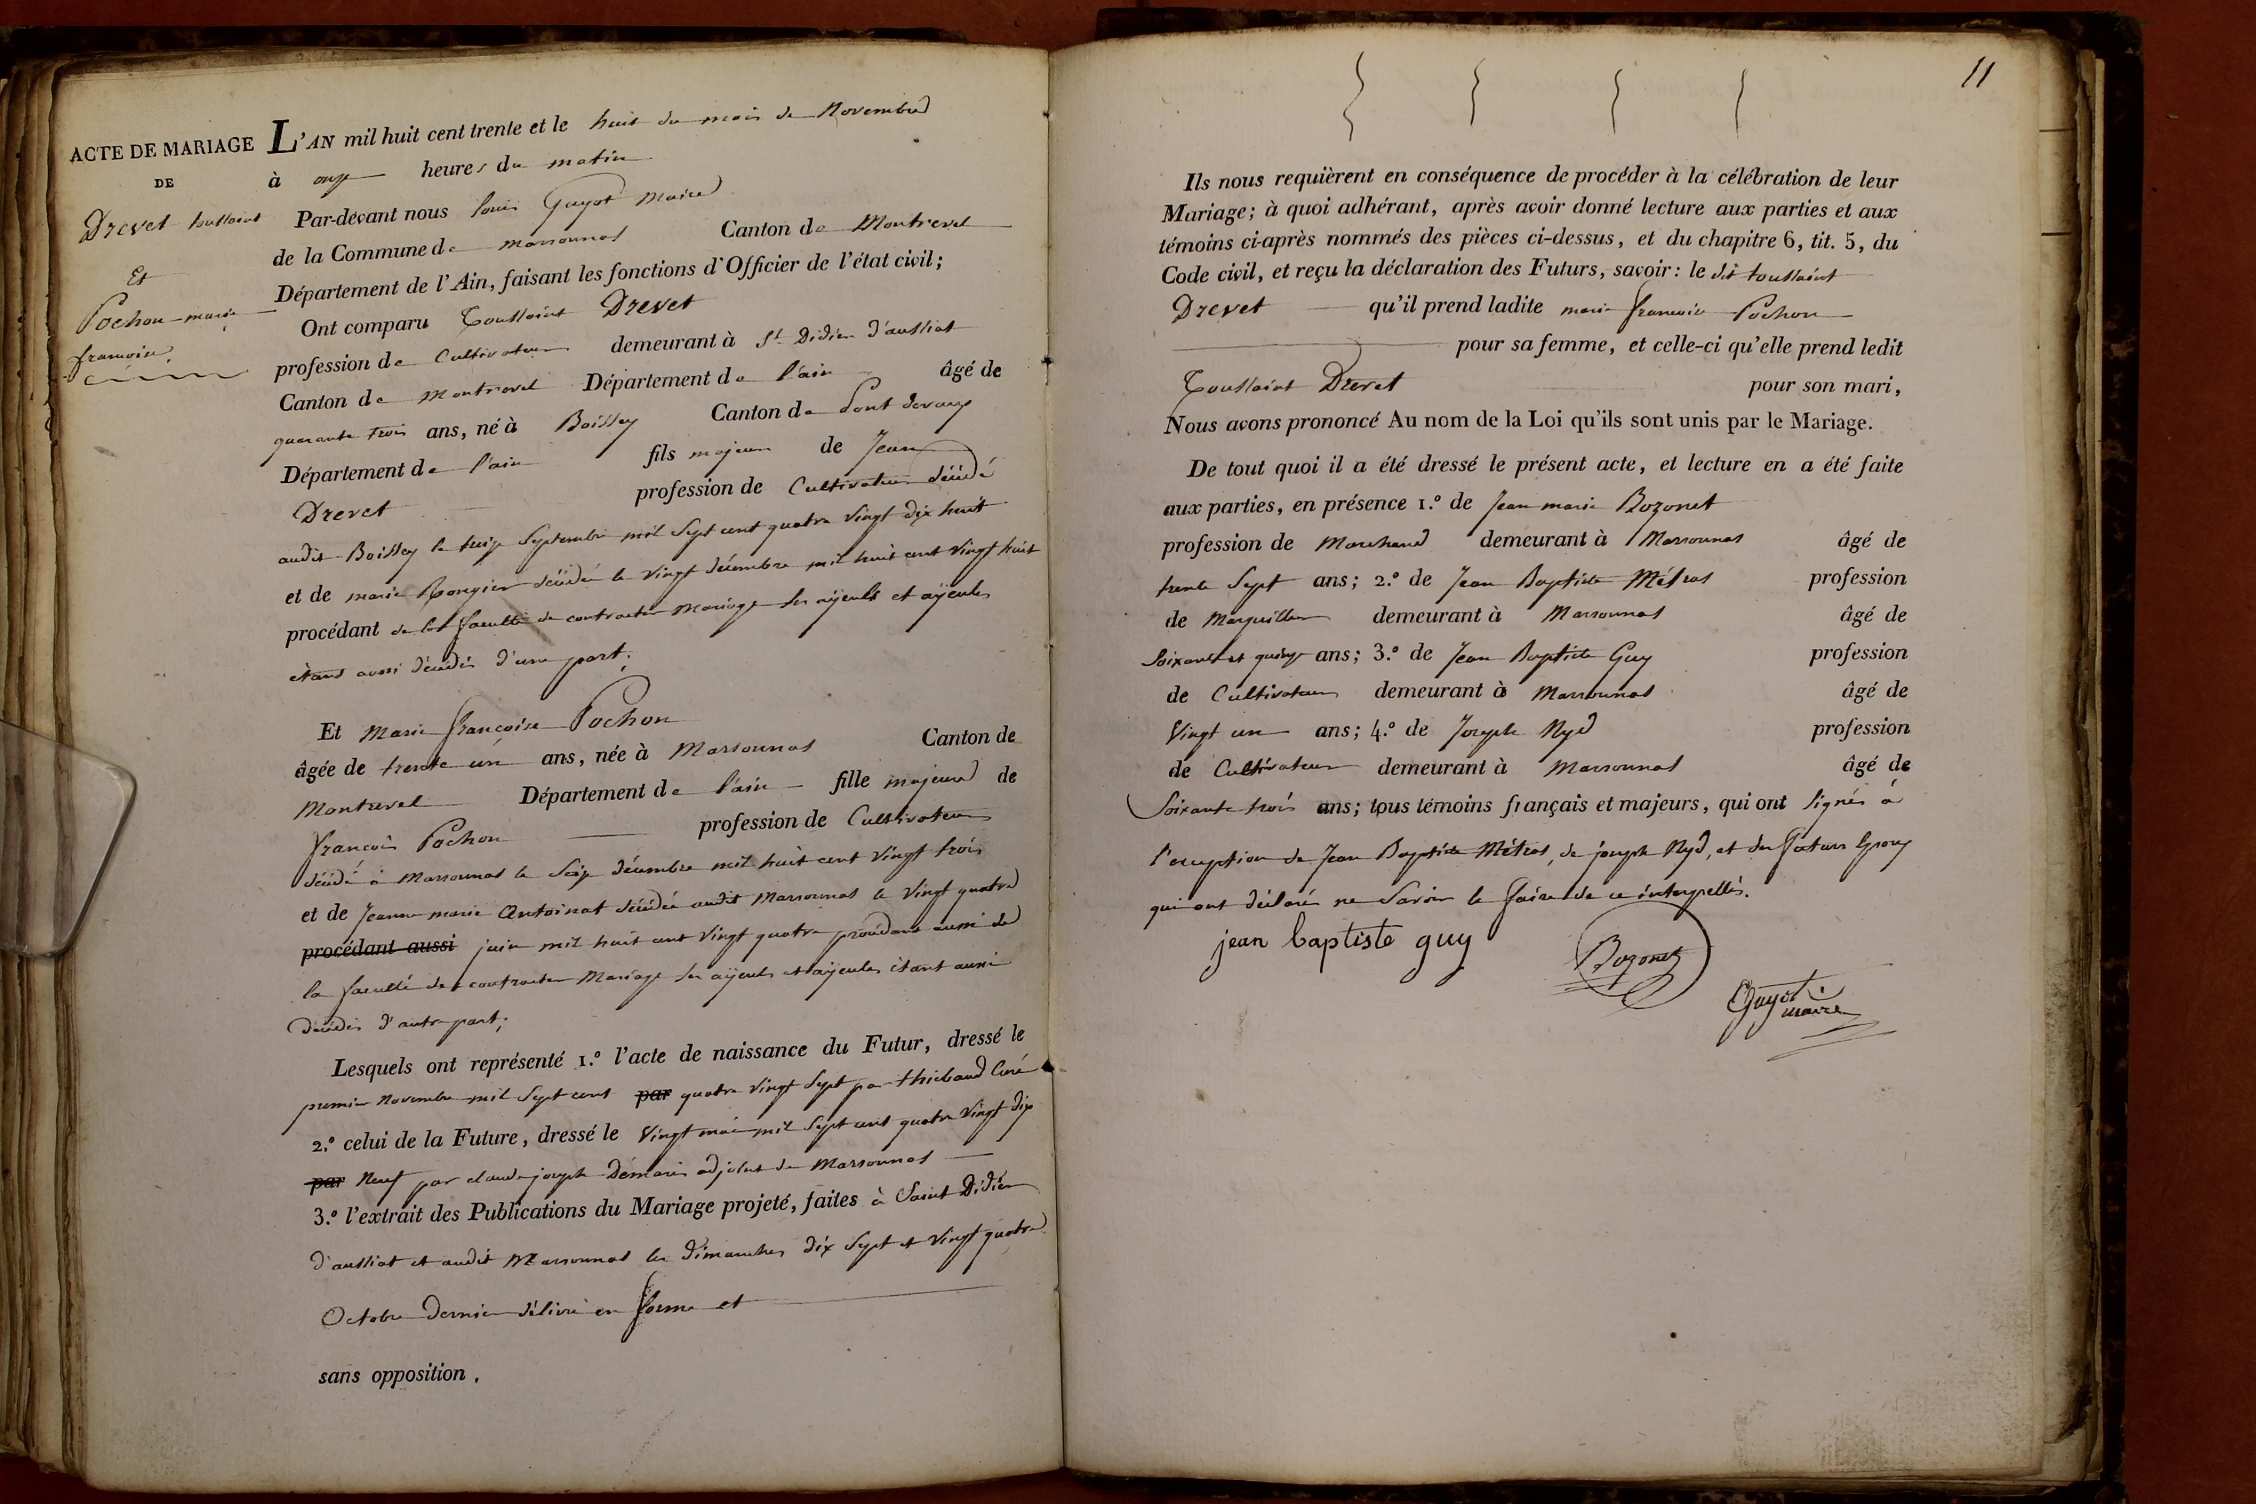 ACTE DE MARIAGE
DE
Drevet toussaint
Et
Pochon marie
francoise
L'AN mil huit cent trente et le huit du mois de Novembre
à onze heures du matin
Par-devant nous louis Guyot Maire
de la Commune de marsonnas Canton de Montrevel
Département de l'Ain, faisant les fonctions d'Officier de l'état civil;
Ont comparu Toussaint Drevet
profession de Cultivateur demeurant à St Didier d'aussiat
Canton de montrevel Département de l'ain âgé de
quarante trois ans, né à Boissey Canton de Pont devaux
Département de l'ain fils majeur de Jean
Drevet profession de Cultivateur décédé
audit Boissey le treize Septembre mil Sept cent quatre Vingt dix huit
et de marie décédée le Vingt décembre mil huit cent Vingt huit
procédant de la faculté de contracter Mariage Ses aÿeuls et aÿeules
étant aussi décédés d'une part;
Et Marie françoise Pochon
âgée de trente un ans, née à Marsonnas Canton de
Montrevel Département de l'ain fille majeure de
françois Pochon profession de Cultivateur
décédé à Marsonnas le Seize décembre mil huit cent Vingt trois
et de Jeanne marie Antoinat décédée audit Marsonnas le Vingt quatre
procédant aussi juin mil huit cent Vingt quatre procédant aussi de
la faculté de contracter Mariage Ses aÿeuls et aÿeules étant aussi
décédés d'autre part;
Lesquels ont représenté 1.º l'acte de naissance du Futur, dressé le
premier Novembre mil Sept cent par quatre Vingt Sept par thiebaud Curé
2.º celui de la Future, dressé le Vingt mai mil Sept cent quatre Vingt dix
par Neuf par claude joseph Démaris adjoint de Marsonnas
3.º l'extrait des Publications du Mariage projeté, faites à Saint Didier
d'aussiat et audit Marsonnas les dimanches dix Sept et Vingt quatre
Octobre dernier délivré en forme et
sans opposition.
11
Ils nous requièrent en conséquence de procéder à la célébration de leur
Mariage; à quoi adhérant, après avoir donné lecture aux parties et aux
témoins ci-après nommés des pièces ci-dessus, et du chapitre 6, tit. 5, du
Code civil, et reçu la déclaration des Futurs, savoir: le dit toussaint
Drevet qu'il prend ladite marie françoise Pochon
pour sa femme, et celle-ci qu'elle prend ledit
Toussaint Drevet pour son mari,
Nous avons prononcé Au nom de la Loi qu'ils sont unis par le Mariage.
De tout quoi il a été dressé le présent acte, et lecture en a été faite
aux parties, en présence 1.º de Jean marie Bozonet
profession de Marchand demeurant à Marsonnas âgé de
trente Sept ans; 2.º de Jean Baptiste Métras profession
de Marguiller demeurant à Marsonnas âgé de
Soixante et quinze ans; 3.º de Jean Baptiste Guy profession
de Cultivateur demeurant à Marsonnas âgé de
Vingt un ans; 4.º de Joseph Nyd profession
de Cultivateur demeurant à Marsonnas âgé de
Soixante trois ans; tous témoins français et majeurs, qui ont Signés à
l'exception de Jean Baptiste Métras, de joseph Nyd, et des futurs Epoux
qui ont déclaré ne Savoir le faire de ce interpellés.
jean baptiste guy
Bozonet
Guyot
maire